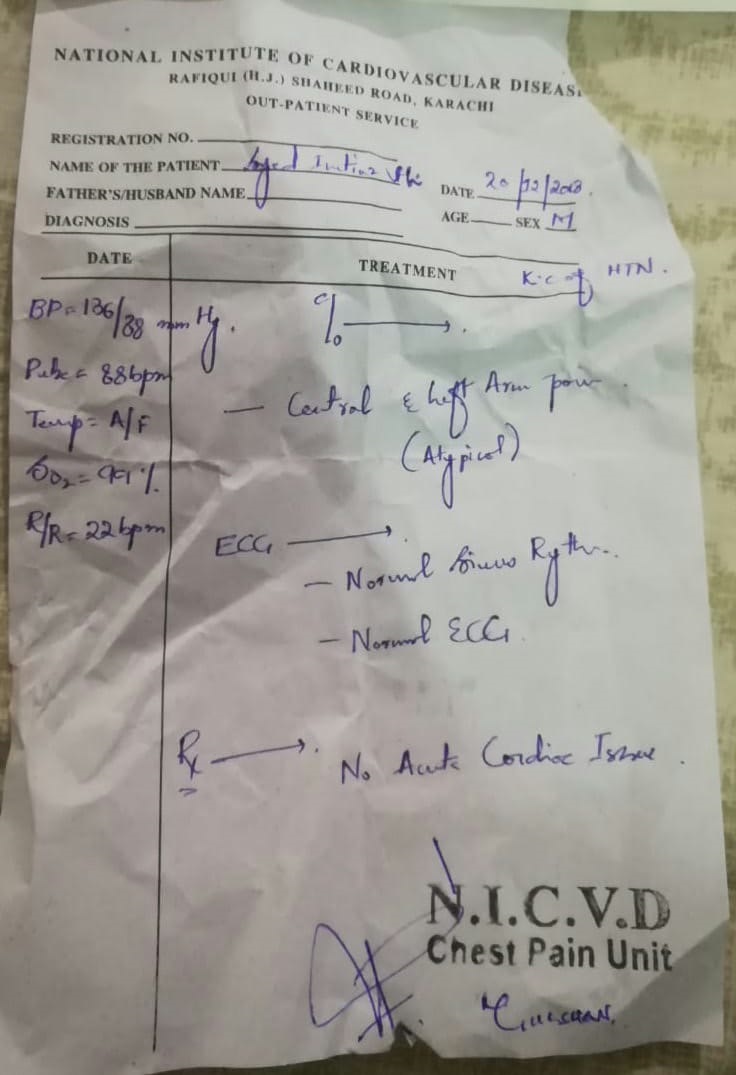 NATIONAL INSTITUTE OF CARDIOVASCULAR DISEAS
RAFIQUI (H.J.) SHAHEED ROAD, KARACHI
OUT-PATIENT SERVICE
REGISTRATION NO.
NAME OF THE PATIENT Syed Imtiaz
FATHER'S/HUSBAND NAME
DATE 20/12/
DIAGNOSIS
AGE SEX M
DATE
TREATMENT
K.c of HTN.
BP = 136/88 mm Hg.
C/o →.
Pulse = 88bpm
— Central & Left Arm pain.
Temp = A/F
(Atypical)
SO2 = 99%
R/R = 22 bpm
ECG →.
— Normal Sinus Rythm.
— Normal ECG.
Rx →.
No Acute Cardiac Issue.
N.I.C.V.D
Chest Pain Unit
GULSHAN.